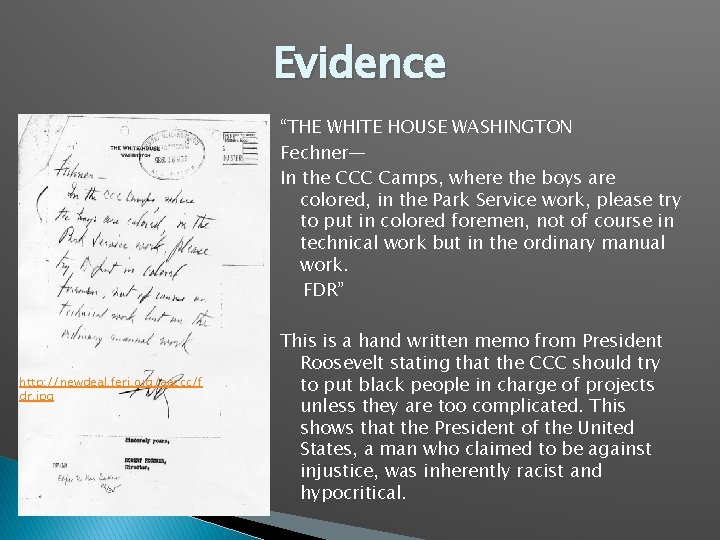 Evidence
“THE WHITE HOUSE WASHINGTON
Fechner—
In the CCC Camps, where the boys are
colored, in the Park Service work, please try
to put in colored foremen, not of course in
technical work but in the ordinary manual
work.
FDR”
This is a hand written memo from President
Roosevelt stating that the CCC should try
to put black people in charge of projects
unless they are too complicated. This
shows that the President of the United
States, a man who claimed to be against
injustice, was inherently racist and
hypocritical.
THE WHITE HOUSE
WASHINGTON
Fechner—
In the CCC Camps where
the boys are colored, in the
Park Service work, please
try to put in colored
foremen, not of course in
technical work but in the
ordinary manual work
FDR
Sincerely yours,
ROBERT FECHNER,
Director.